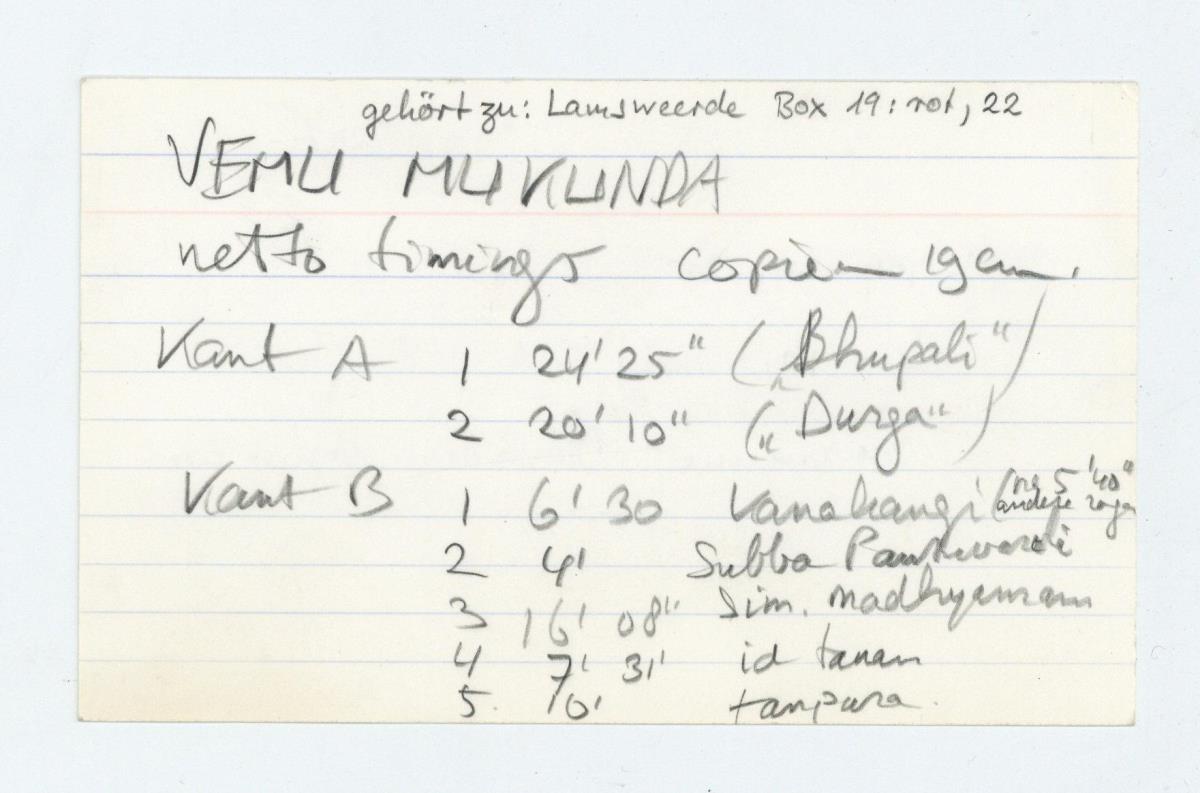 gehört zu: Lamsweerde Box 19: rot, 22
VEMU MUKUNDA
netto timings copieën 19 cm.
Kant A 1 24' 25" („Bhupali")
2 20' 10" („Durga")
Kant B 1 6' 30 Kanakangi (na 5 '40" andere raga
2 4' Subba Pantuvarali
3 16' 08" Sim. madhyamam
4 7' 31' id tanam
5. 10' tanpura